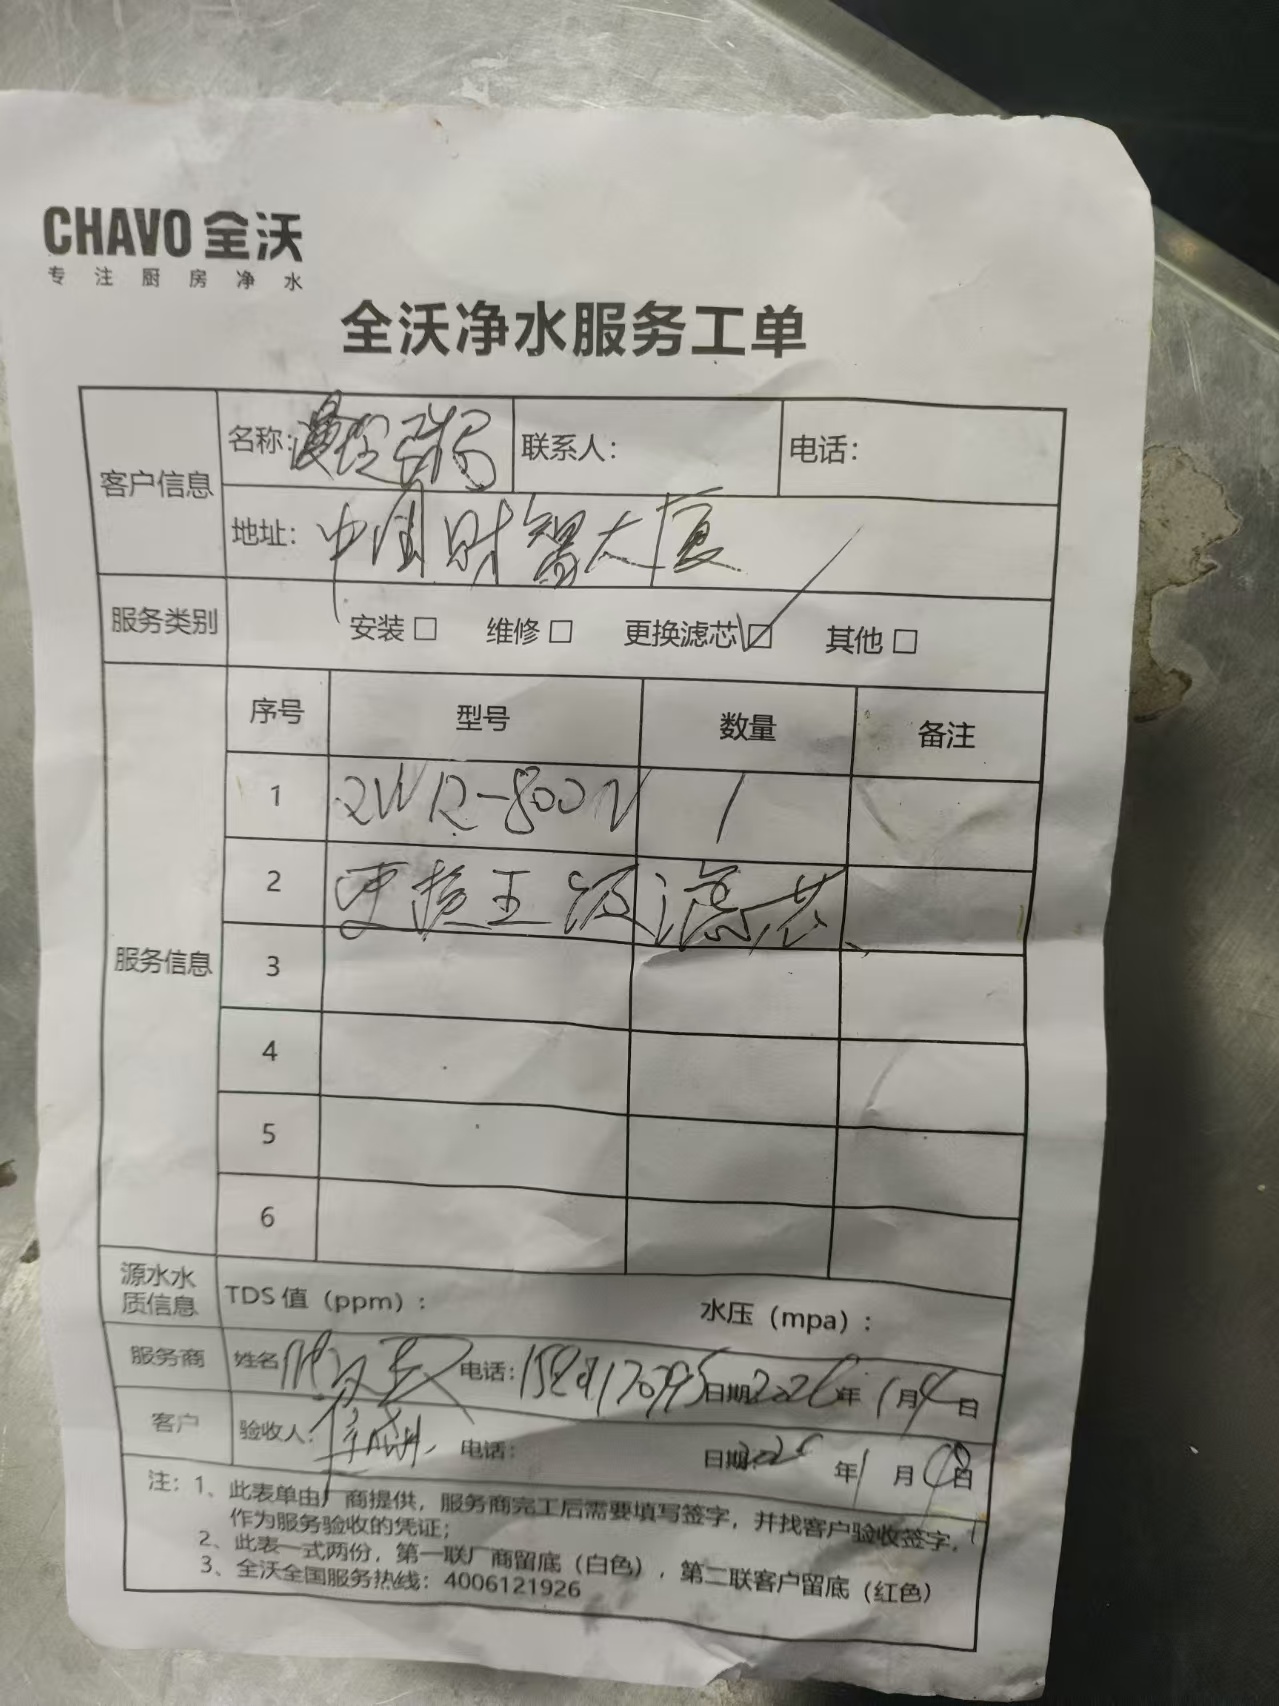 CHAVO 全沃
专注厨房净水
全沃净水服务工单
客户信息
名称: 粥 联系人: 电话:
地址: 中国财智大厦
服务类别 安装 □ 维修 □ 更换滤芯 ☑ 其他 □
服务信息
序号 型号 数量 备注
1 QWR-800N 1
2 更换五级滤芯
3
4
5
6
源水水质信息 TDS 值（ppm）: 水压（mpa）:
服务商 姓名 电话: 日期 2026 年 1 月 日
客户 验收人: 电话: 日期 年 1 月 日
注: 1、此表单由厂商提供，服务商完工后需要填写签字，并找客户验收签字，
作为服务验收的凭证;
2、此表一式两份，第一联厂商留底（白色），第二联客户留底（红色）
3、全沃全国服务热线: 4006121926